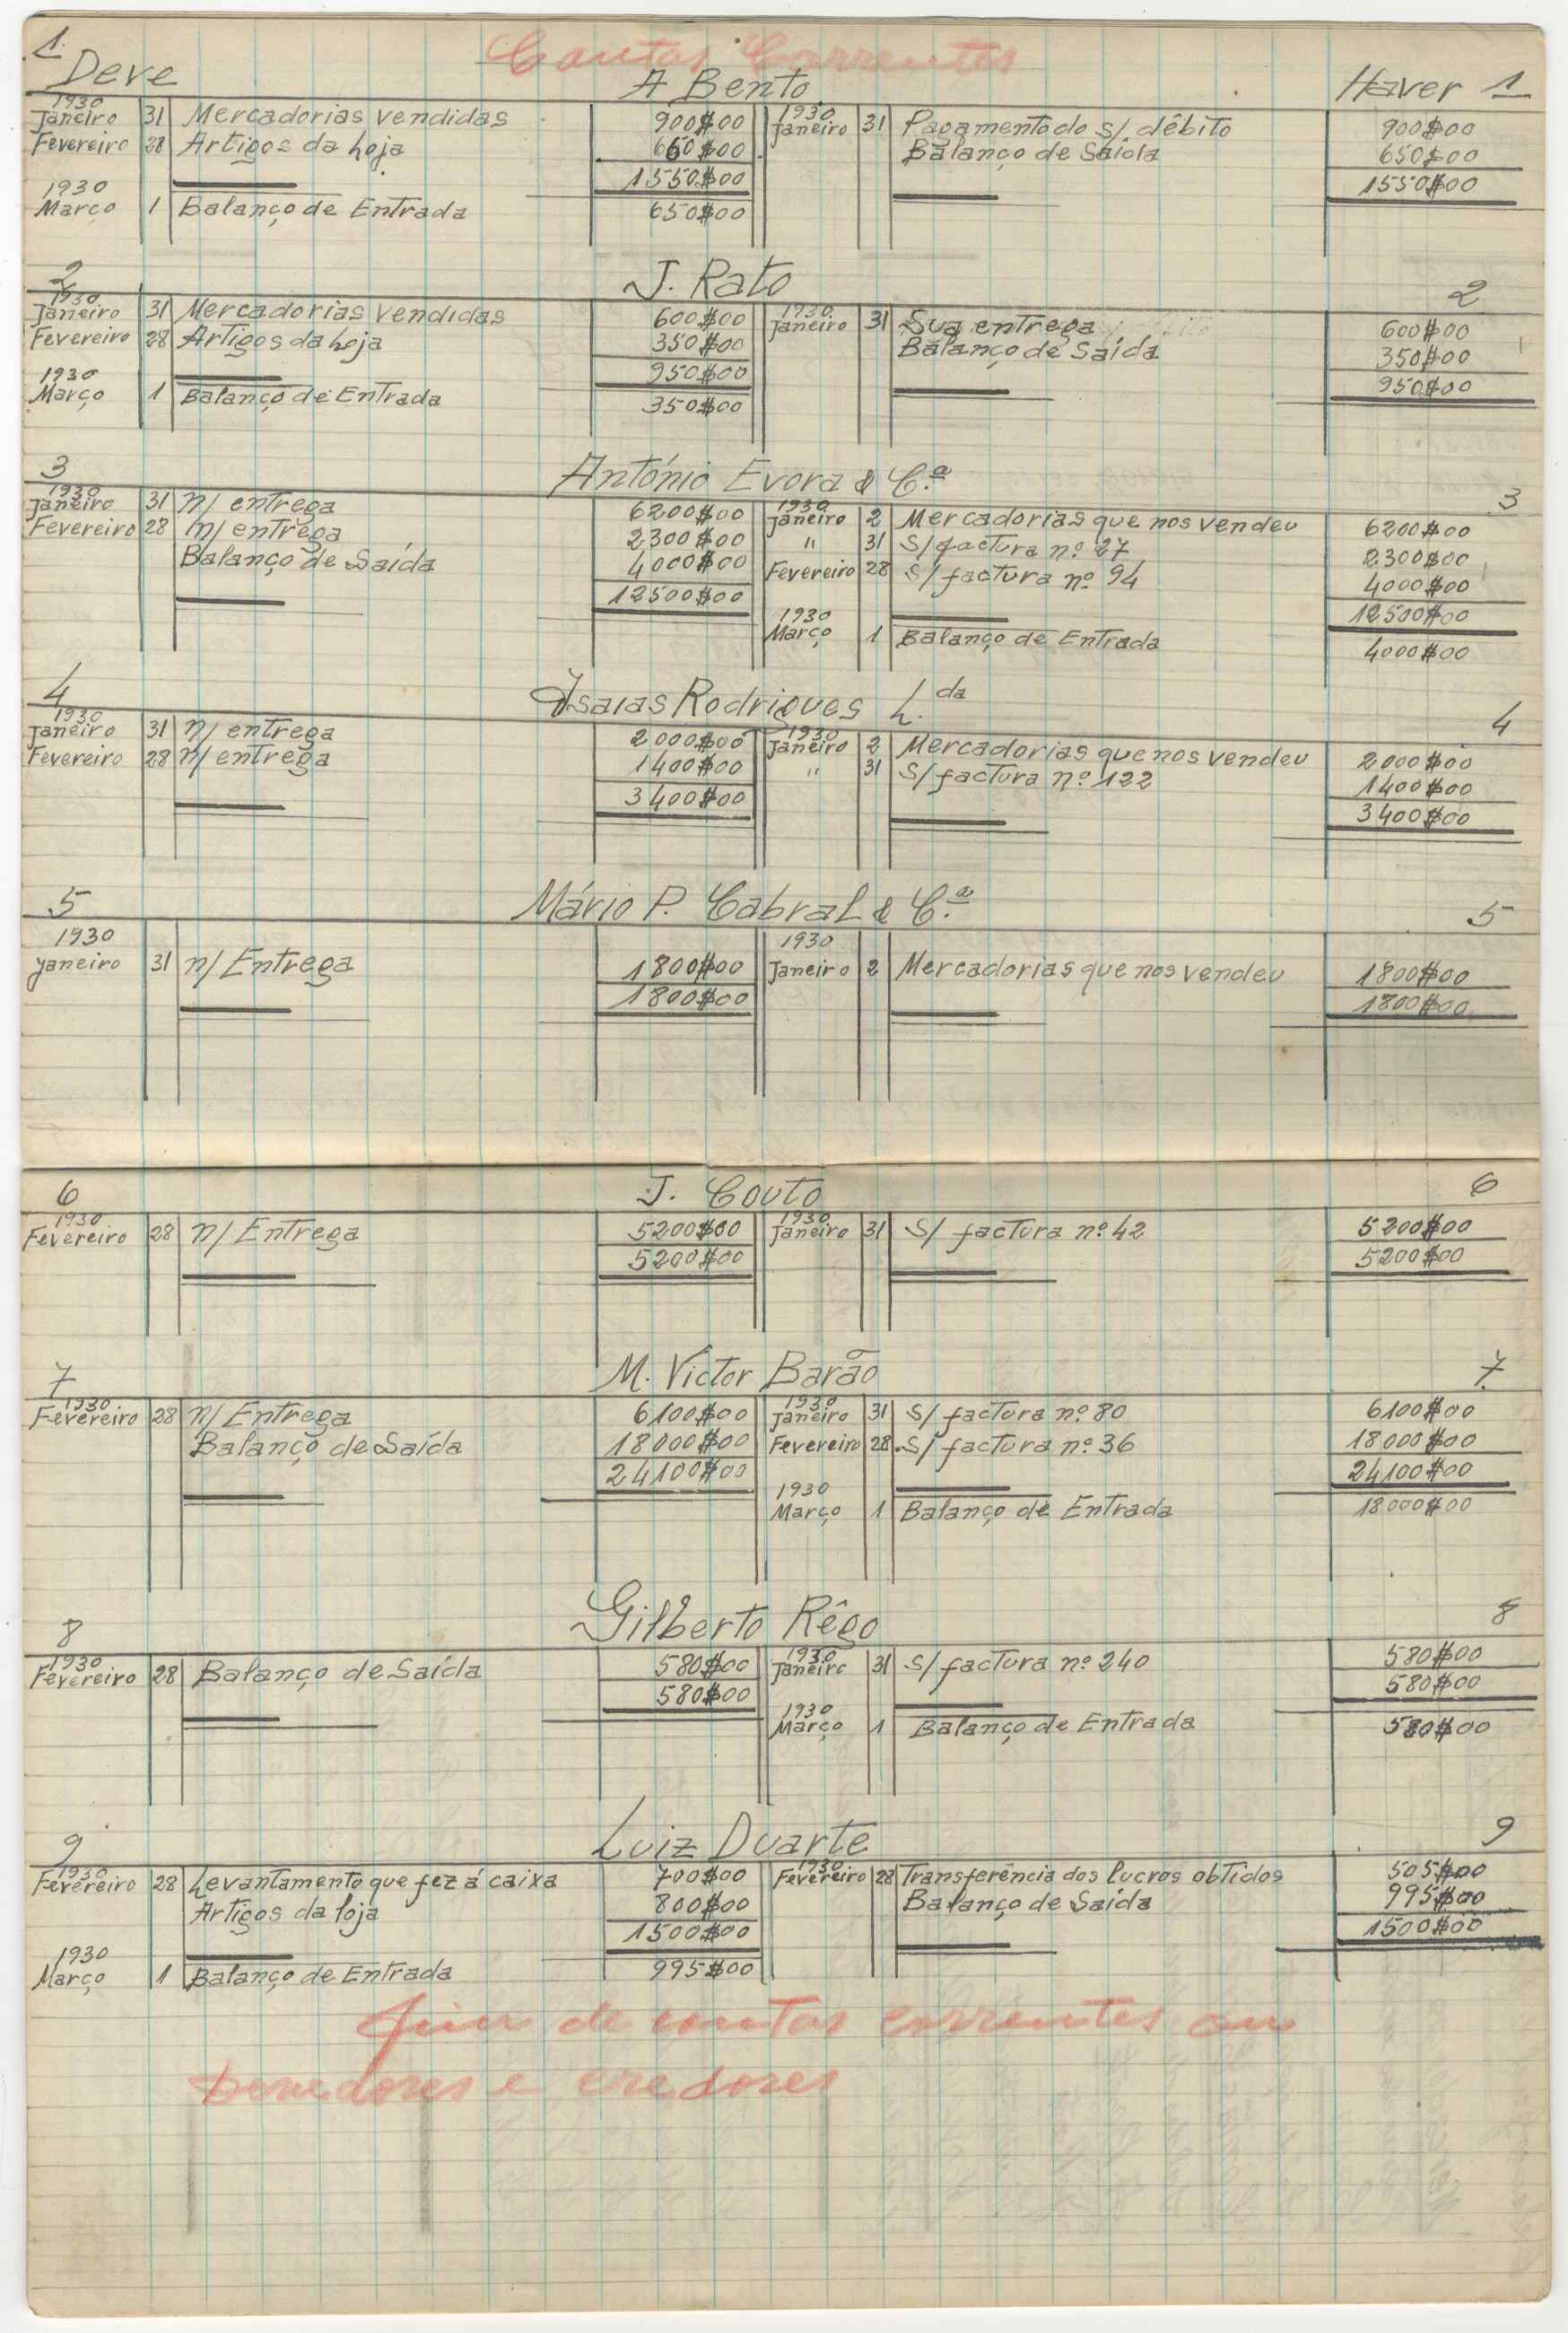 Contas Correntes
1
Deve A Bento Haver 1
1930 1930
Janeiro 31 Mercadorias vendidas 900$00 Janeiro 31 Pagamento do s/ débito 900$00
Fevereiro 28 Artigos da loja 650$00 Balanço de Saída 650$00
1550$00 1550$00
1930
Março 1 Balanço de Entrada 650$00
2 J. Rato 2
1930 1930
Janeiro 31 Mercadorias vendidas 600$00 Janeiro 31 Sua entrega 600$00
Fevereiro 28 Artigos da loja 350$00 Balanço de Saída 350$00
950$00 950$00
1930
Março 1 Balanço de Entrada 350$00
3 António Evora & C.ª 3
1930 1930
Janeiro 31 n/ entrega 6200$00 Janeiro 2 Mercadorias que nos vendeu 6200$00
Fevereiro 28 n/ entrega 2300$00 " 31 S/ factura nº 27 2300$00
Balanço de Saída 4000$00 Fevereiro 28 S/ factura nº 94 4000$00
12500$00 12500$00
1930
Março 1 Balanço de Entrada 4000$00
4 Isaias Rodrigues L.da 4
1930 1930
Janeiro 31 n/ entrega 2000$00 Janeiro 2 Mercadorias que nos vendeu 2000$00
Fevereiro 28 n/ entrega 1400$00 " 31 S/ factura nº 122 1400$00
3400$00 3400$00
5 Mário P. Cabral & C.ª 5
1930 1930
Janeiro 31 n/ Entrega 1800$00 Janeiro 2 Mercadorias que nos vendeu 1800$00
1800$00 1800$00
6 J. Couto 6
1930 1930
Fevereiro 28 n/ Entrega 5200$00 Janeiro 31 S/ factura nº 42 5200$00
5200$00 5200$00
7 M. Víctor Barão 7
1930 1930
Fevereiro 28 n/ Entrega 6100$00 Janeiro 31 S/ factura nº 80 6100$00
Balanço de Saída 18000$00 Fevereiro 28 S/ factura nº 36 18000$00
24100$00 24100$00
1930
Março 1 Balanço de Entrada 18000$00
8 Gilberto Rêgo 8
1930 1930
Fevereiro 28 Balanço de Saída 580$00 Janeiro 31 S/ factura nº 240 580$00
580$00 580$00
1930
Março 1 Balanço de Entrada 580$00
9 Luiz Duarte 9
1930 1930
Fevereiro 28 Levantamento que fez á caixa 700$00 Fevereiro 28 Transferência dos lucros obtidos 505$00
Artigos da loja 800$00 Balanço de Saída 995$00
1500$00 1500$00
1930
Março 1 Balanço de Entrada 995$00
Fim de contas correntes ou
Devedores e credores